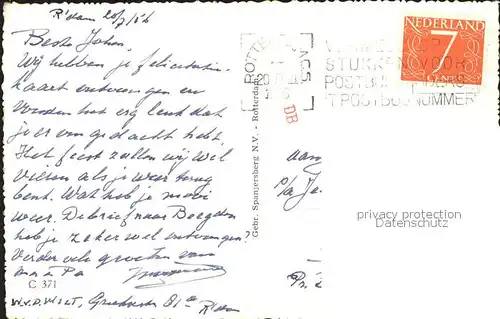 R'dam 20/7/56
Beste Johan.
Wij hebben je felicitatie-
kaart ontvangen en
vonden het erg leuk dat
je er aan gedacht hebt.
Het feest zullen wij wel
vieren als je weer terug
bent. Wat heb je mooi
weer. De brief naar Beegden
heb je zeker wel ontvangen?
Verder vele groeten van
ma & Pa
C 371
Gebr. Spanjersberg N.V. - Rotterdam
ROTTE
STUKKEN VOOR
POSTBUS
'T POSTBUSNUMMER
NEDERLAND
7
CENTS
DB
aan
p/a Je
privacy protection
Datenschutz.